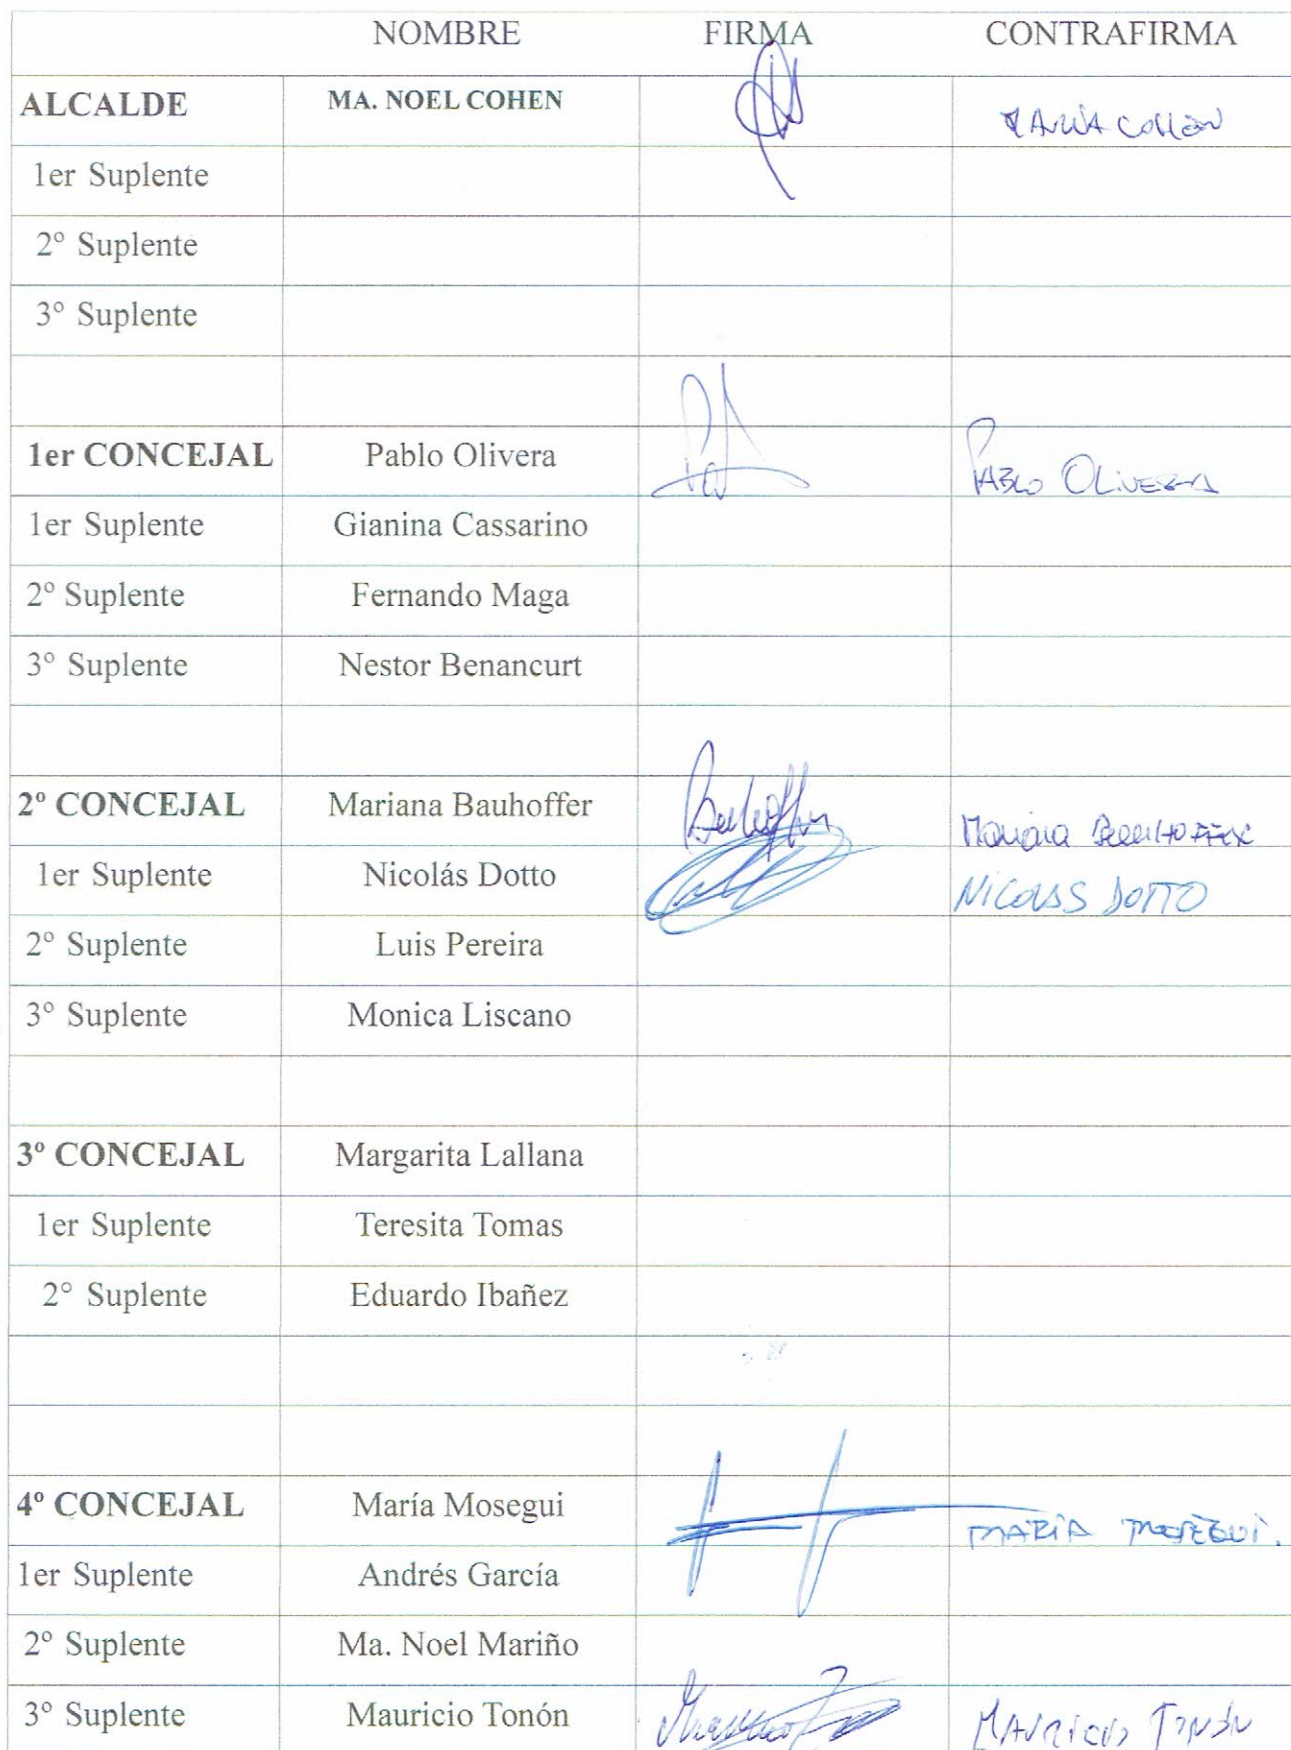 NOMBRE FIRMA CONTRAFIRMA
ALCALDE MA. NOEL COHEN MARIA COHEN
1er Suplente
2° Suplente
3° Suplente
1er CONCEJAL Pablo Olivera PABLO OLIVERA
1er Suplente Gianina Cassarino
2° Suplente Fernando Maga
3° Suplente Nestor Benancurt
2º CONCEJAL Mariana Bauhoffer Bauhoffer Mariana BAUHOFFER
1er Suplente Nicolás Dotto NICOLAS DOTTO
2° Suplente Luis Pereira
3° Suplente Monica Liscano
3º CONCEJAL Margarita Lallana
1er Suplente Teresita Tomas
2° Suplente Eduardo Ibañez
4º CONCEJAL María Mosegui MARÍA MOSEGUI.
1er Suplente Andrés García
2° Suplente Ma. Noel Mariño
3° Suplente Mauricio Tonón MAURICIO TONÓN